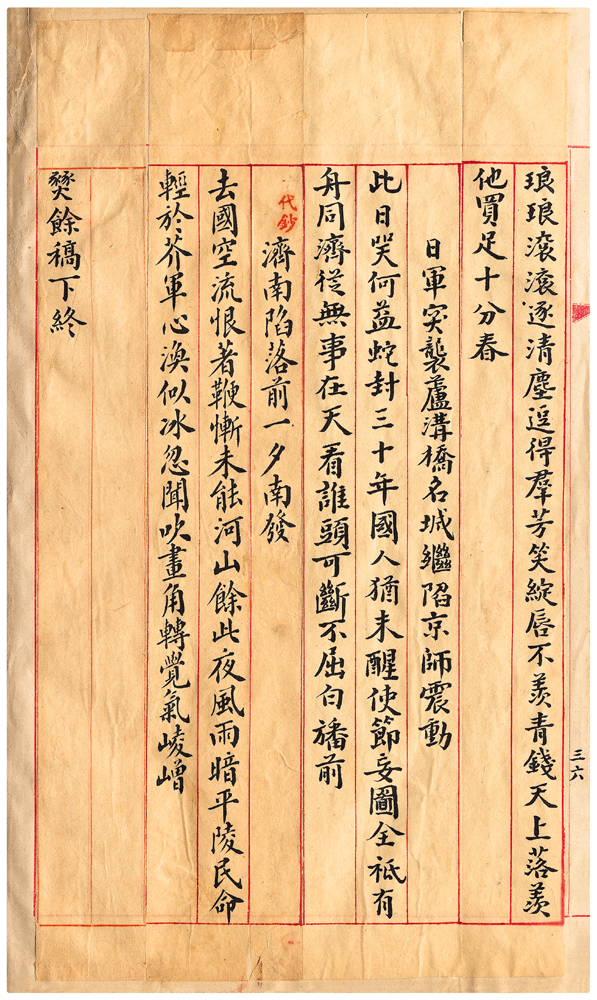 琅琅滾滾逐清塵逗得羣芳笑綻唇不羨青錢天上落羨
他買足十分春
日軍突襲蘆溝橋名城繼陷京師震動
此日哭何益蛇封三十年國人猶未醒使節妄圖全祗有
舟同濟從無事在天看誰頭可斷不屈白旛前
代鈔
濟南陷落前一夕南發
去國空流恨著鞭慚未能河山餘此夜風雨暗平陵民命
輕於芥軍心渙似冰忽聞吹畫角轉覺氣崚嶒
焚餘稿下終
三六